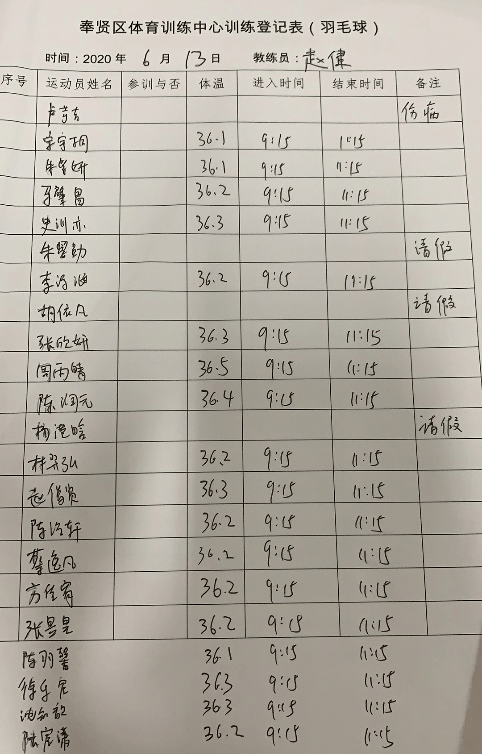 奉贤区体育训练中心训练登记表（羽毛球）
时间：2020 年 6 月 13 日 教练员：赵健
序号 运动员姓名 参训与否 体温 进入时间 结束时间 备注
卢 伤病
36.1 9:15 11:15
朱 妍 36.1 9:15 11:15
昌 36.2 9:15 11:15
史 亦 36.3 9:15 11:15
朱 勋 请假
李 36.2 9:15 11:15
胡依凡 请假
张欣妍 36.3 9:15 11:15
周雨晴 36.5 9:15 11:15
陈润元 36.4 9:15 11:15
杨 晗 请假
林 弘 36.2 9:15 11:15
赵 36.3 9:15 11:15
陈 轩 36.2 9:15 11:15
蔡逸凡 36.2 9:15 11:15
方佳 36.2 9:15 11:15
张昱昊 36.2 9:15 11:15
陈羽馨 36.1 9:15 11:15
徐 36.3 9:15 11:15
沈 363 9:15 11:15
陆 清 36.2 9:15 11:15